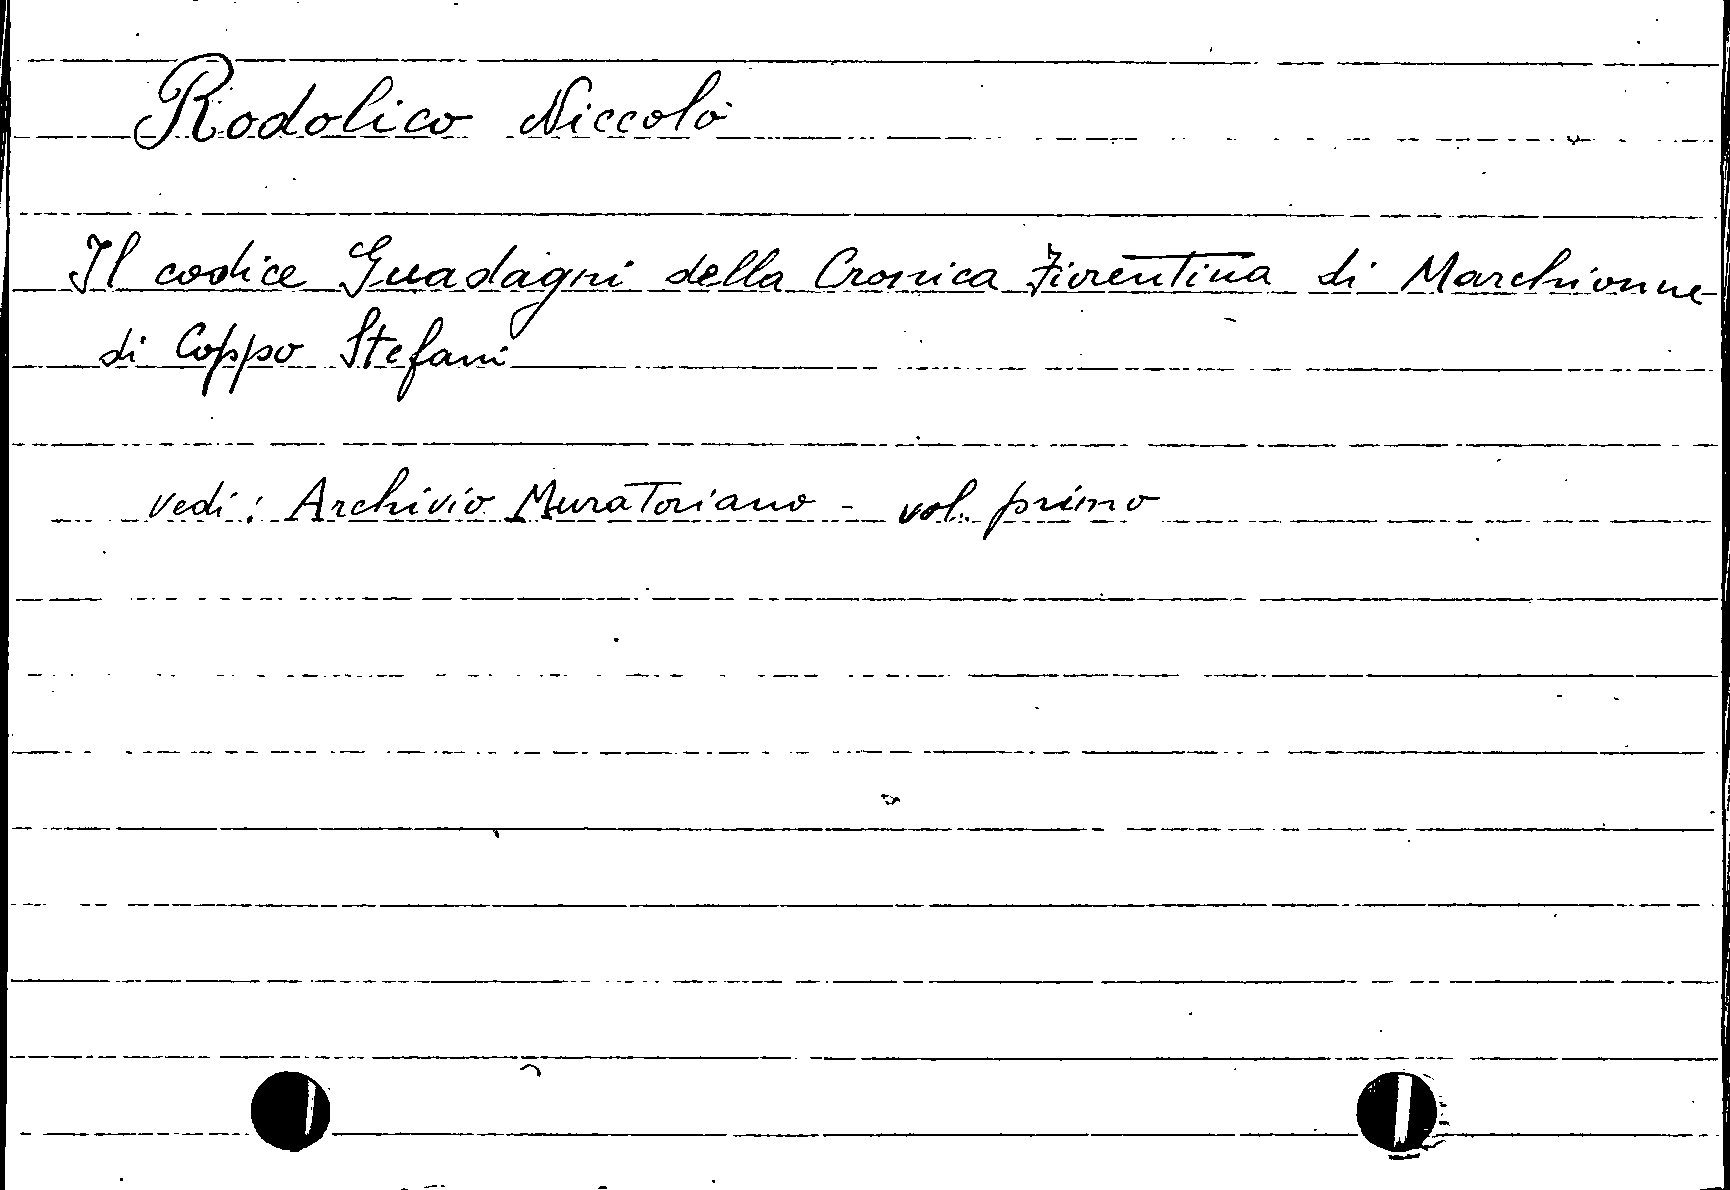 Rodolico Niccolò
Il codice Guadagni della Cronica Fiorentina di Marchionne
di Coppo Stefani
vedi: Archivio Muratoriano - vol. primo